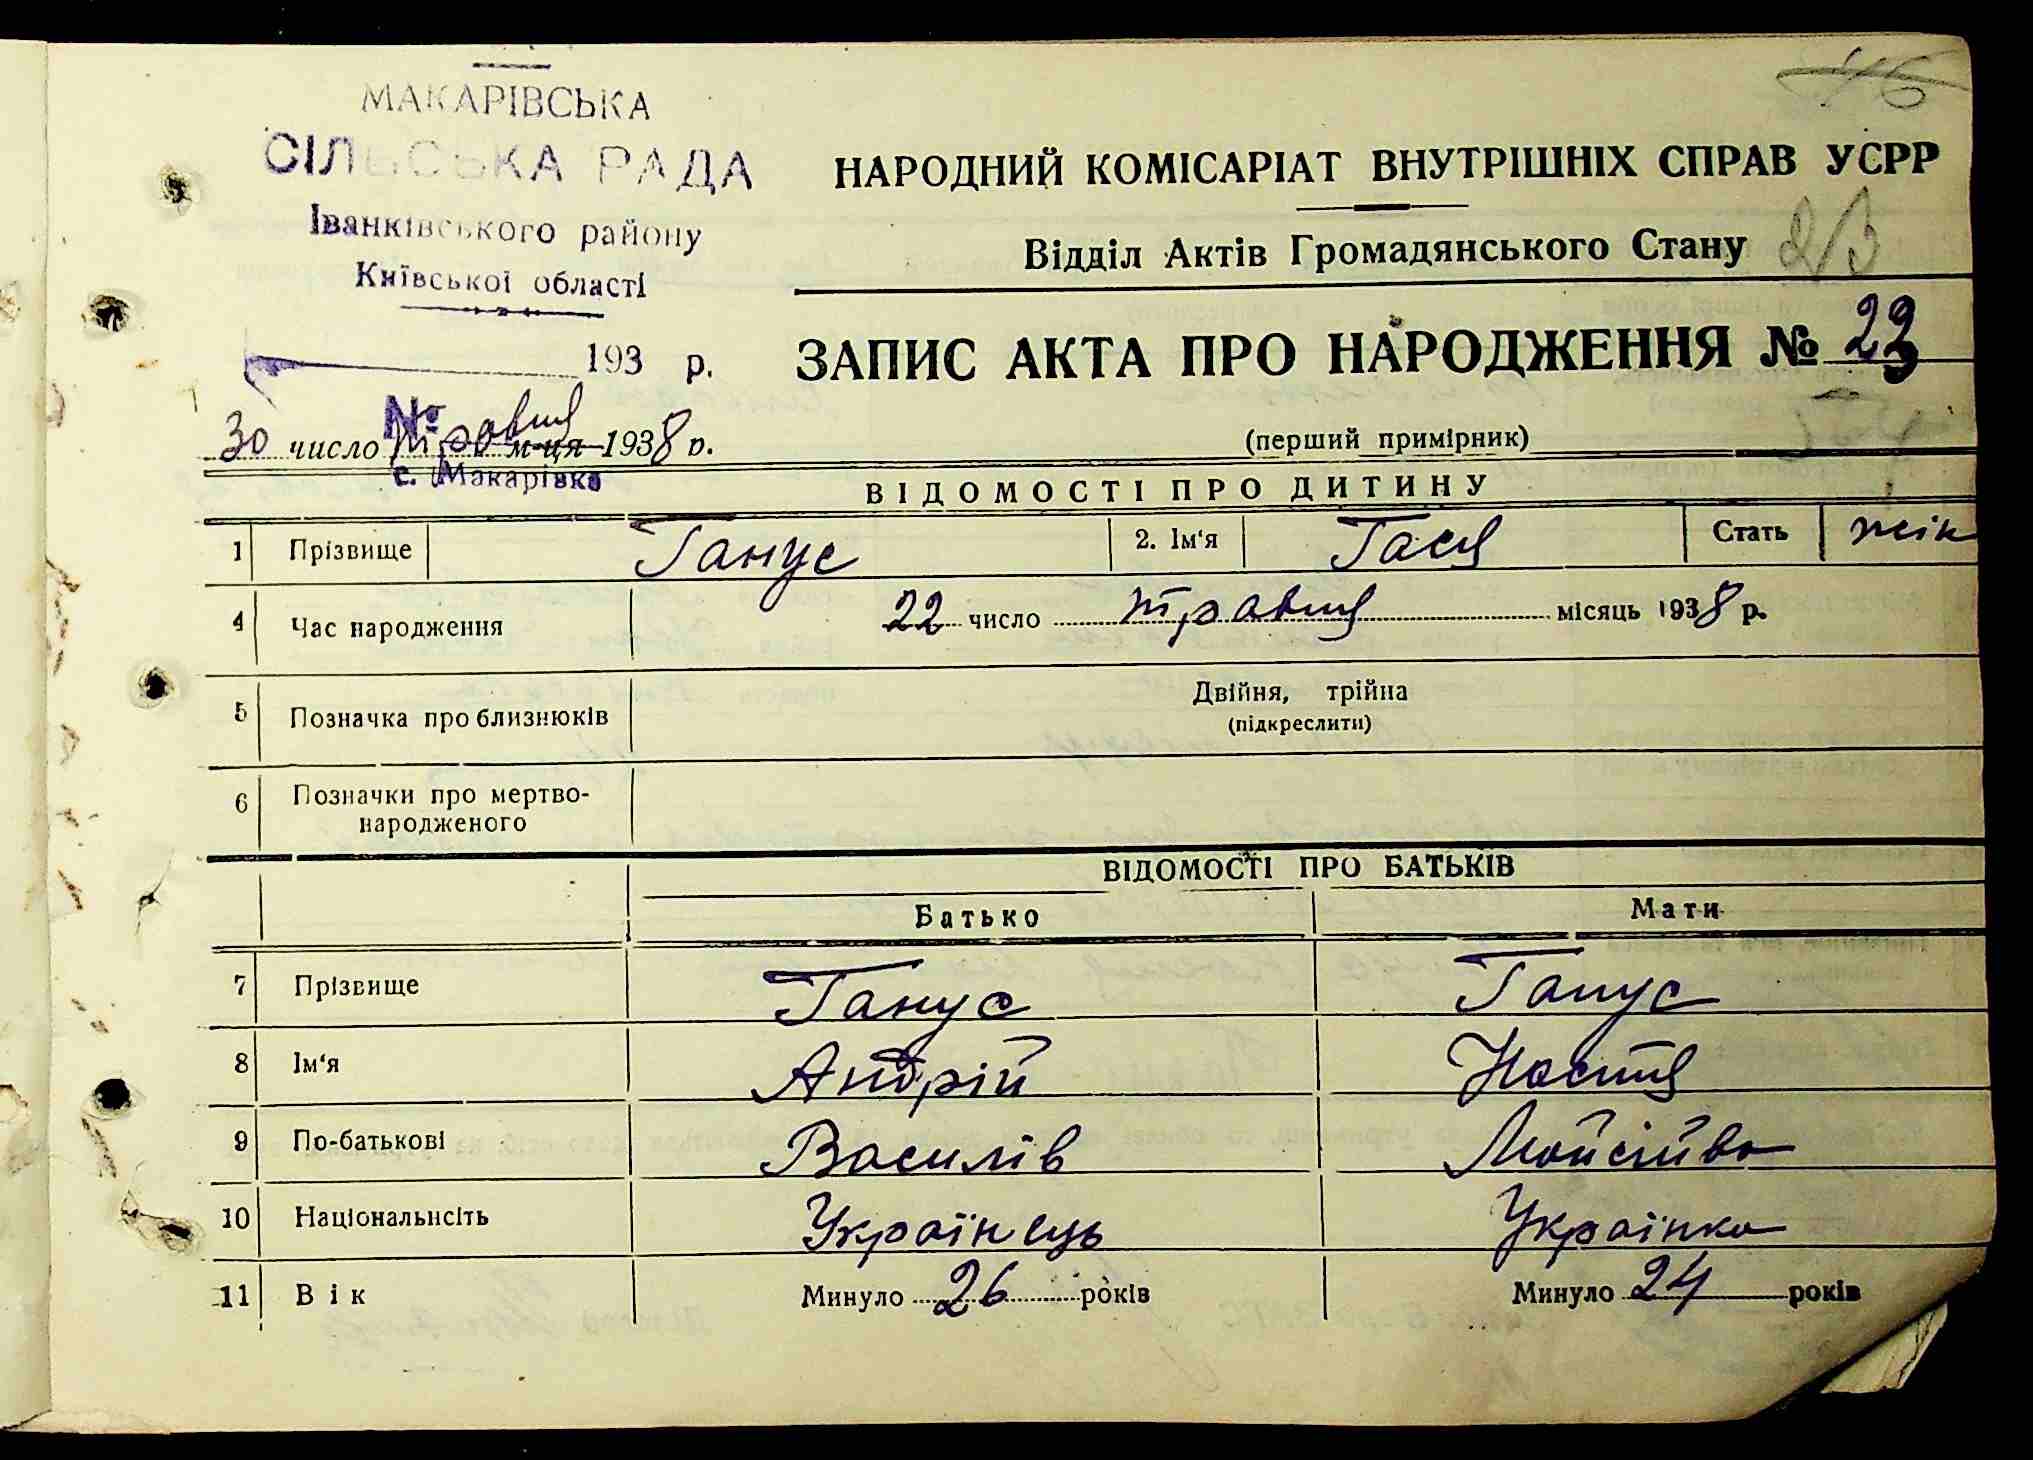 46
МАКАРІВСЬКА
СІЛЬСЬКА РАДА
Іванківського району
Київської області
193 р.
№
с. Макарівка
НАРОДНИЙ КОМІСАРІАТ ВНУТРІШНІХ СПРАВ УСРР
Відділ Актів Громадянського Стану
ЗАПИС АКТА ПРО НАРОДЖЕННЯ № 23
30 число травня м-ця 1938 р.
(перший примірник)
ВІДОМОСТІ ПРО ДИТИНУ
1 Прізвище Ганус 2. Ім'я Гася Стать жін
4 Час народження 22 число травня місяць 1938 р.
5 Позначка про близнюків Двійня, трійна
(підкреслити)
6 Позначки про мертво-
народженого
ВІДОМОСТІ ПРО БАТЬКІВ
Батько Мати
7 Прізвище Ганус Ганус
8 Ім'я Андрій Настя
9 По-батькові Василів Мойсіївна
10 Національнсіть Українець Українка
11 Вік Минуло 26 років Минуло 24 років